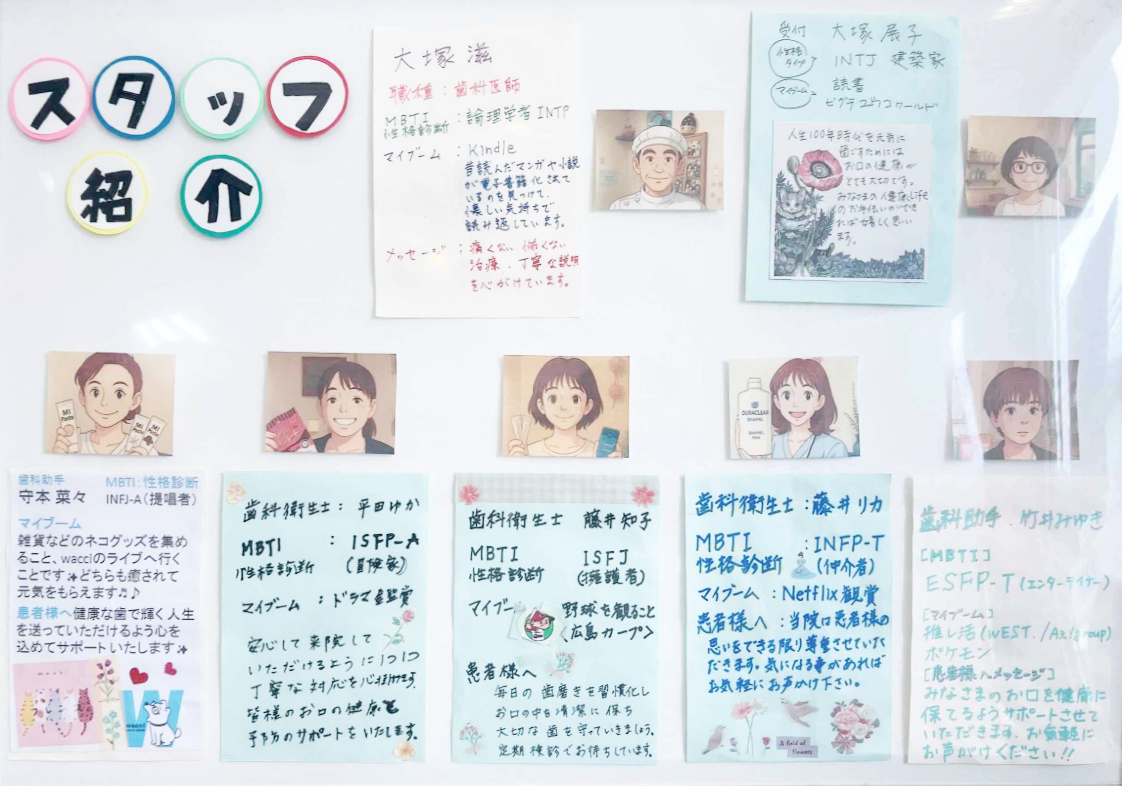 スタッフ
紹介
大塚 滋
職種：歯科医師
MBTI
性格診断：論理学者 INTP
マイブーム：Kindle
昔読んだマンガや小説
が電子書籍化されて
いるのを見つけて、
懐しい気持ちで
読み返しています。
メッセージ：痛くない、怖くない
治療、丁寧な説明
を心がけています。
受付 大塚 展子
性格タイプ INTJ 建築家
マイブーム 読書
ワールド
人生100年時代を元気に
過ごすためには
お口の健康が
とても大切です。
みなさまの健康Life
のお手伝いができ
れば嬉しく思い
ます。
Mi
Mi
Mi
DURACLEAR
歯科助手
守本 菜々
MBTI：性格診断
INFJ-A（提唱者）
マイブーム
雑貨などのネコグッズを集め
ること、wacciのライブへ行く
ことです✨どちらも癒されて
元気をもらえます♫♪
患者様へ健康な歯で輝く人生
を送っていただけるよう心を
込めてサポートいたします✨
W
歯科衛生士：平田ゆか
MBTI：ISFP-A
性格診断（冒険家）
マイブーム：ドラマ鑑賞
安心して来院して
いただけるように1つ1つ
丁寧な対応を心掛けます。
皆様のお口の健康を
予防のサポートをいたします。
歯科衛生士 藤井知子
MBTI ISFJ
性格診断（擁護者）
マイブーム 野球を観ること
〈広島カープ〉
患者様へ
毎日の歯磨きを習慣化し
お口の中を清潔に保ち
大切な歯を守っていきましょう。
定期検診でお待ちしています。
歯科衛生士：藤井リカ
MBTI：INFP-T
性格診断（仲介者）
マイブーム：Netflix観賞
患者様へ：当院は患者様の
思いをできる限り尊重させていた
だきます。気になる事があれば
お気軽にお声かけ下さい。
A field of
Flowers
歯科助手．竹井みゆき
［MBTI］
ESFP-T（エンターテイナー）
［マイブーム］
推し活（WEST. / Aぇ! group）
ポケモン
［患者様へメッセージ］
みなさまのお口を健康に
保てるようサポートさせて
いただきます。お気軽に
お声がけください!!